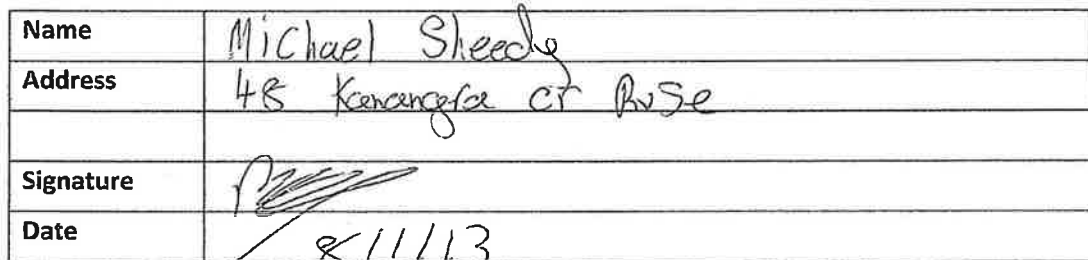 Name Michael Sheedy
Address 48 Kanangra cr Ruse
Signature
Date 8/11/13